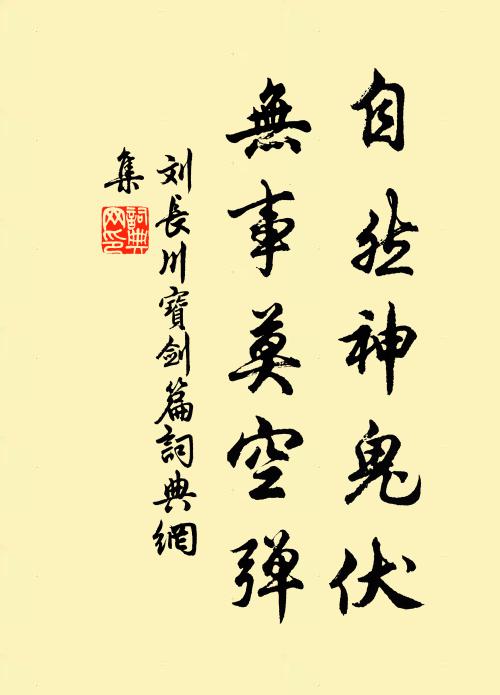 自然神鬼伏
無事莫空弹
刘長川寶劍篇詞典網
集
詞典
网印